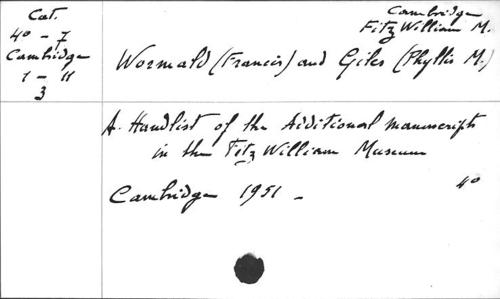 Cat.
4° - 7
Cambridge
1 - 11
3
Cambridge
FitzWilliam M.
Wormald (Francis) and Giles (Phyllis M.)
A. Handlist of the Additional manuscripts
in the FitzWilliam Museum
Cambridge 1951 -
4°